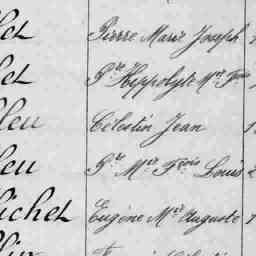 let Pierre Marie Joseph
let Pre Hippolyte Mie Frois
leu Célestin Jean
leu Pre Mie Frois Louis
lichet Eugène Mie Auguste